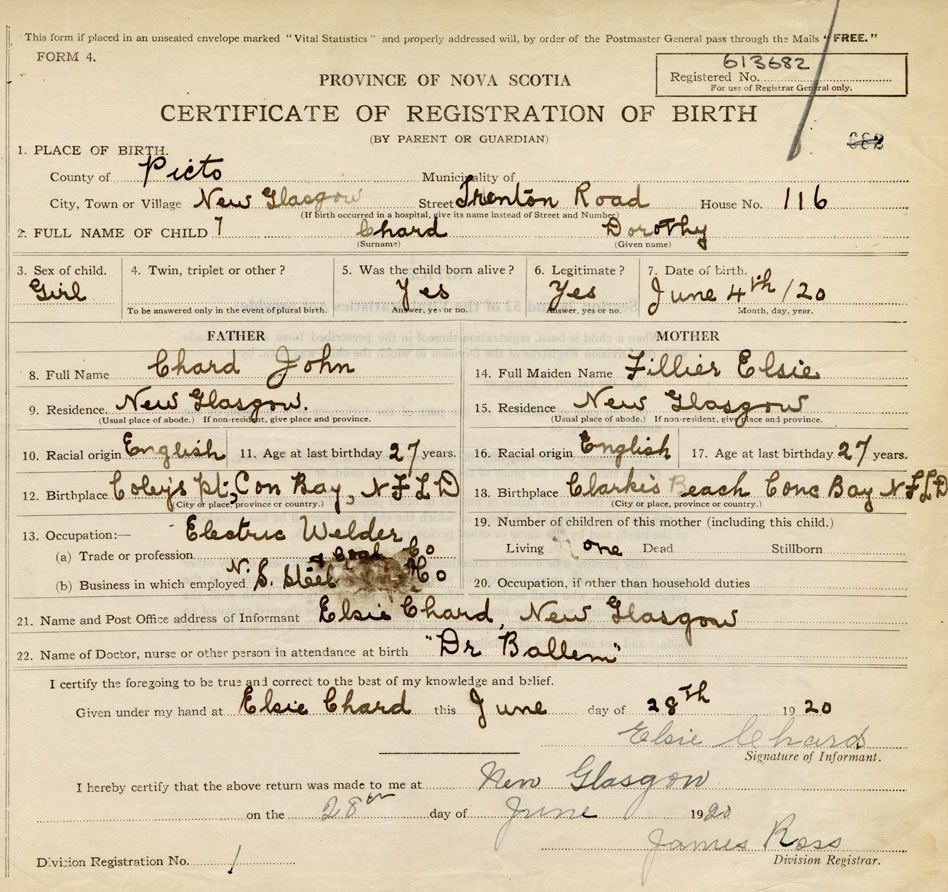 This form if placed in an unsealed envelope marked "Vital Statistics" and properly addressed will, by order of the Postmaster General pass through the Mails "FREE."
FORM 4.
613682
Registered No.
For use of Registrar General only.
PROVINCE OF NOVA SCOTIA
CERTIFICATE OF REGISTRATION OF BIRTH
(BY PARENT OR GUARDIAN)
1. PLACE OF BIRTH.
County of Picto Municipality of
City, Town or Village New Glasgow Street Trenton Road House No. 116
(If birth occurred in a hospital, give its name instead of Street and Number)
2. FULL NAME OF CHILD Chard Dorothy
(Surname) (Given name)
3. Sex of child. 4. Twin, triplet or other? 5. Was the child born alive? 6. Legitimate? 7. Date of birth.
Girl Yes Yes June 4th/20
To be answered only in the event of plural birth. Answer, yes or no. Answer, yes or no. Month, day, year.
FATHER MOTHER
8. Full Name Chard John 14. Full Maiden Name Fillier Elsie
9. Residence. New Glasgow. 15. Residence New Glasgow
(Usual place of abode.) If non-resident, give place and province. (Usual place of abode.) If non-resident, give place and province.
10. Racial origin English 11. Age at last birthday 27 years. 16. Racial origin English 17. Age at last birthday 27 years.
12. Birthplace Coleys Pt, Con Bay, NFLD 18. Birthplace Clarkis Beach Conc Bay NFLD
(City or place, province or country.) (City or place, province or country.)
13. Occupation:— Electric Welder 19. Number of children of this mother (including this child.)
(a) Trade or profession Living one Dead Stillborn
(b) Business in which employed N. S. Steel & Coal Co 20. Occupation, if other than household duties
21. Name and Post Office address of Informant Elsie Chard, New Glasgow
22. Name of Doctor, nurse or other person in attendance at birth "Dr Ballem"
I certify the foregoing to be true and correct to the best of my knowledge and belief.
Given under my hand at Elsie Chard this June day of 28Th 1920
Elsie Chard
Signature of Informant.
I hereby certify that the above return was made to me at New Glasgow
on the 28th day of June 1920
James Ross
Division Registrar.
Division Registration No. 1